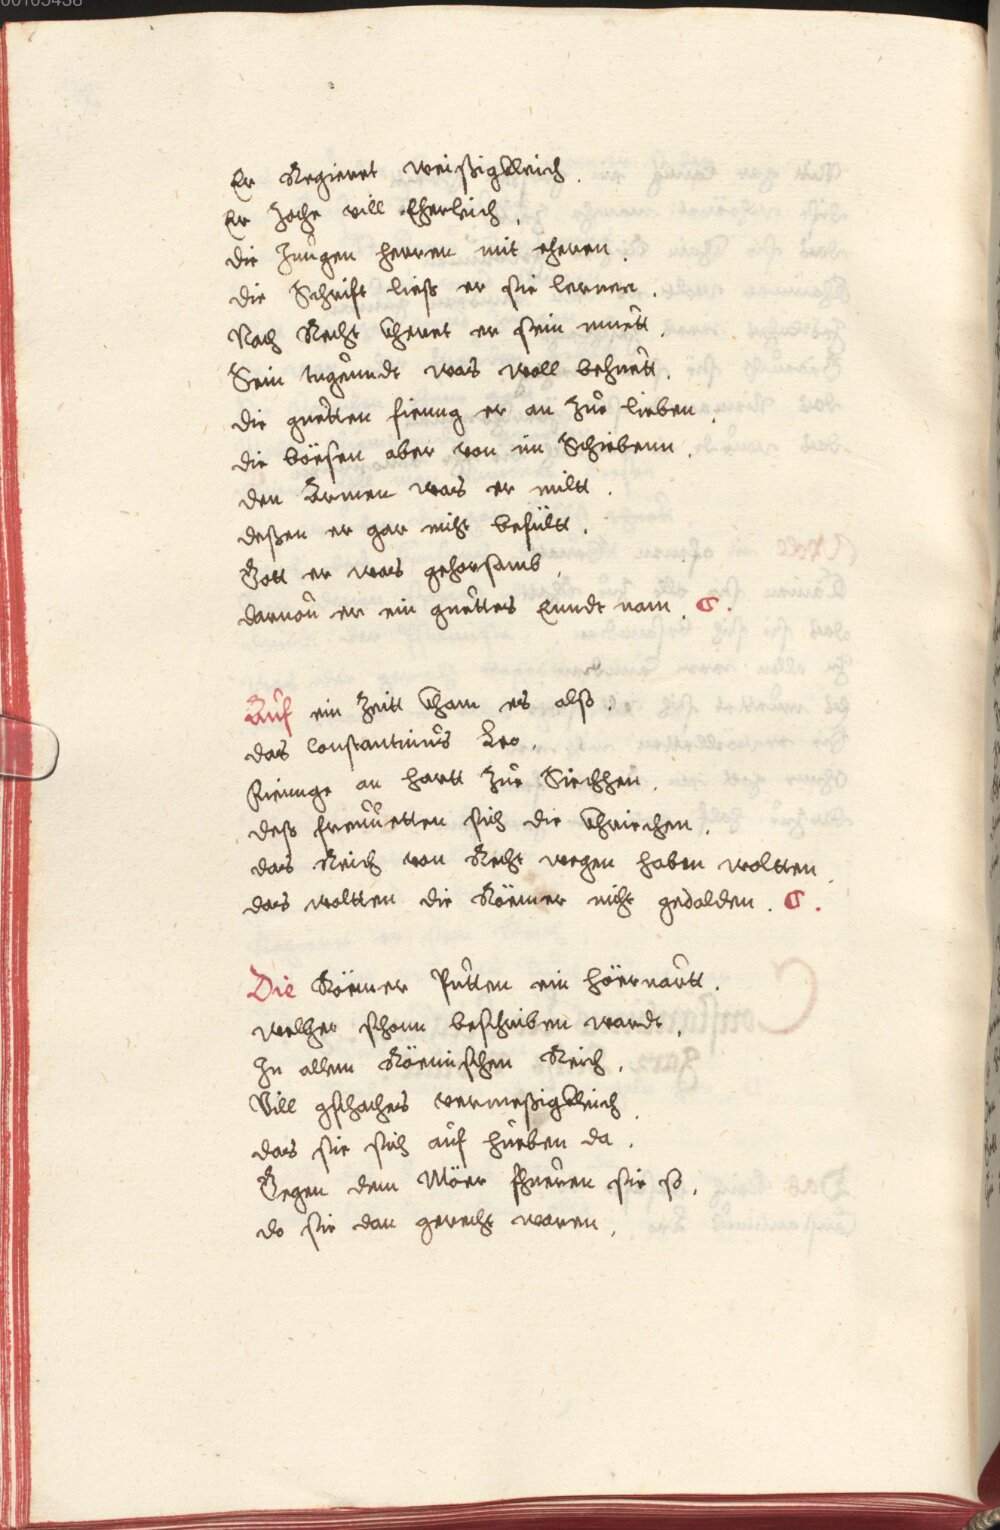 00105438
Er Regieret weißigkleich.
Er Zoche vill Eherleich.
die Jungen herren mit eheren.
die Schrifft ließ er sie lernen.
Nach Recht kheret er sein muett.
Sein tugenndt was woll behuett.
die guetten fienng er an Zue lieben.
die böesen aber von im Schiebenn.
den Armen was er milt.
deßen er gar nicht befültt.
Gott er was gehorsamb.
darnon er ein guettes Enndt nam. C.
Auf ein Zeitt kham es alß.
das Constantinus Leo.
fiennge an hartt Zue Siechhen.
deß freuuetten sich die khriechen.
das Reich von Recht wegen haben woltten.
das woltten die Röemer nicht gedolden. C.
Die Röemer Putten ein höeruartt.
welher schonn beschriben wardt.
In allem Röemischen Reich.
Vill gschaches vermeßigkleich.
das sie sich auf hueben da.
Gegen dem Möer fhueren sie so.
do sie dan gerecht waren.